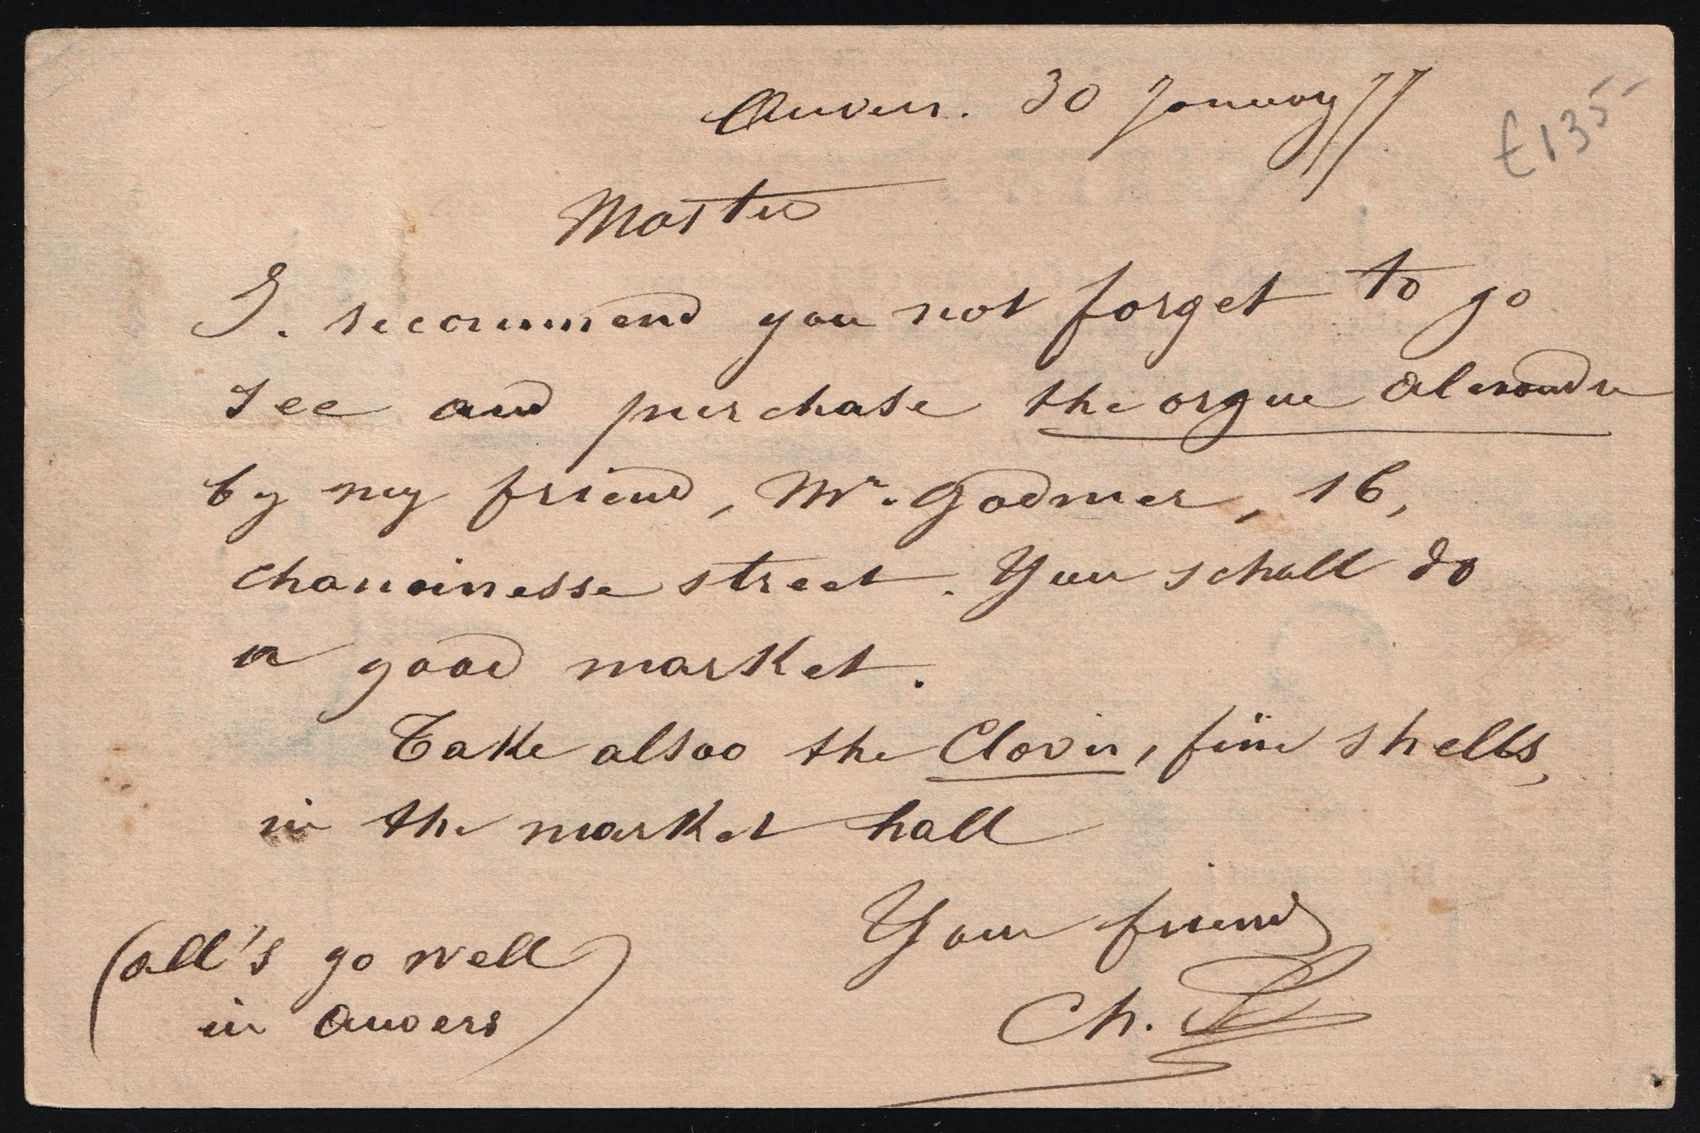 Anvers. 30 January 77
£135-
Master
I. recommend you not forget to go
see and purchase the orgue alexandre
by my friend, Mr. Godmer, 16,
chanoinesse street. You schall do
a good market.
Take alsoo the Clovis, fine shells,
in the market hall
Your friend
Ch.
(all's go well
in Anvers)